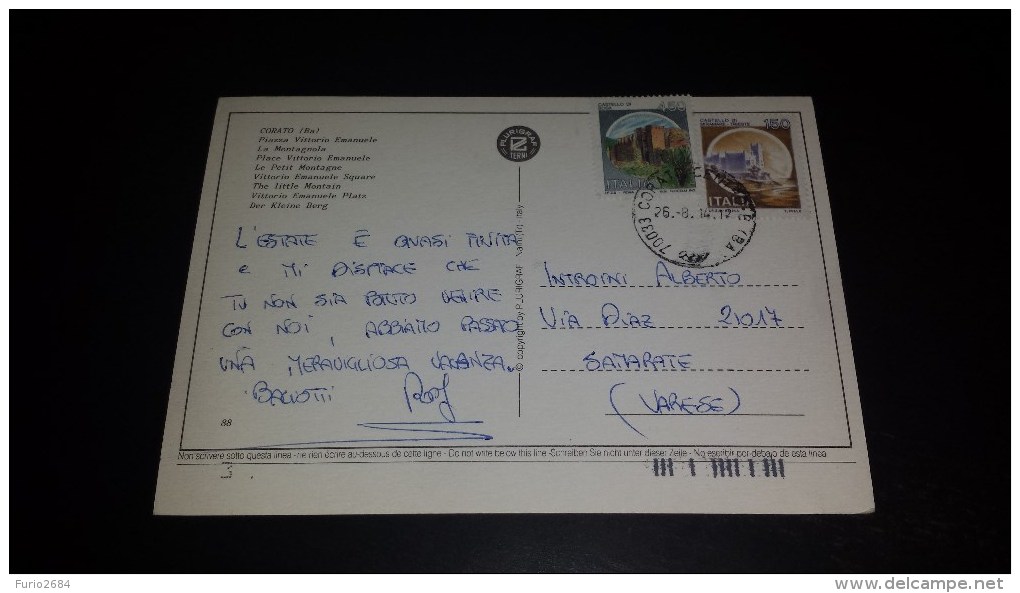 CORATO (Ba)
Piazza Vittorio Emanuele
La Montagnola
Place Vittorio Emanuele
Le Petit Montagne
Vittorio Emanuele Square
The little Montain
Vittorio Emanuele Platz
Der Kleine Berg
PLURIGRAF
TERNI
CASTELLO DI
450
ITALIA
CASTELLO DI
150
ITALIA
70033
26.-8.
(BA)
© copyright by PLURIGRAF Narni (Tr) - Italy
L'ESTATE È QUASI FINITA
E MI DISPIACE CHE
TU NON SIA POTUTO VENIRE
CON NOI, ABBIAMO PASSATO
UNA MERAVIGLIOSA VACANZA.
INTROINI ALBERTO
VIA DIAZ 21017
SAMARATE
(VARESE)
88
Non scrivere sotto questa linea - ne rien écrire au-dessous de cette ligne - Do not write below this line - Schreiben Sie nicht unter dieser Zeile - No escribir por debajo de esta linea
3
Furio2684
www.delcampe.net